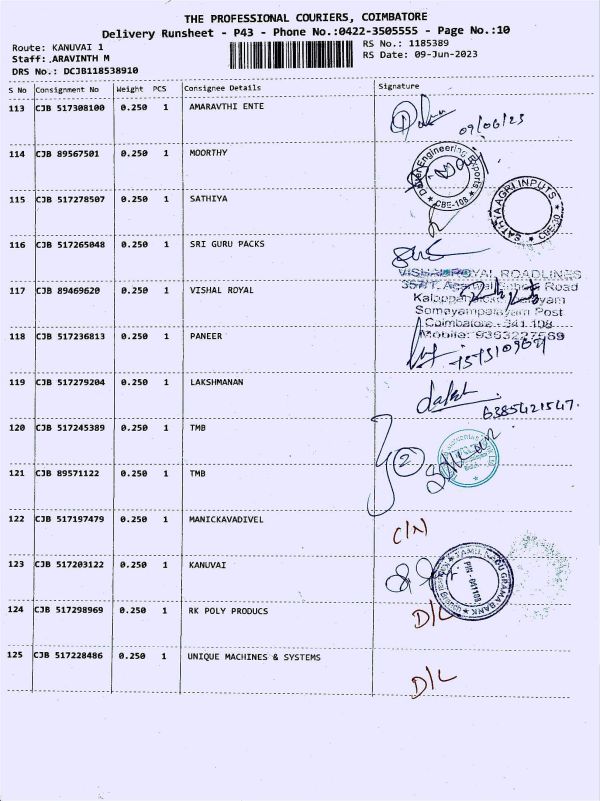 THE PROFESSIONAL COURIERS, COIMBATORE
Delivery Runsheet - P43 - Phone No.:0422-3505555 - Page No.:10
Route: KANUVAI 1
RS No.: 1185389
Staff: .ARAVINTH M
RS Date: 09-Jun-2023
DRS No.: DCJB118538910
S No Consignment No Weight PCS Consignee Details Signature
113 CJB 517308100 0.250 1 AMARAVTHI ENTE
09/06/23
114 CJB 89567501 0.250 1 MOORTHY
Engineering
CBE-108
115 CJB 517278507 0.250 1 SATHIYA
SATHYA AGRI INPUTS
CBE-30
116 CJB 517265048 0.250 1 SRI GURU PACKS
VISHAL ROYAL ROADLINES
117 CJB 89469620 0.250 1 VISHAL ROYAL
Road
Somayampalayam Post
Coimbatore - 641 108
Mobile: 9363227569
118 CJB 517236813 0.250 1 PANEER
119 CJB 517279204 0.250 1 LAKSHMANAN
6385421547.
120 CJB 517245389 0.250 1 TMB
2
121 CJB 89571122 0.250 1 TMB
122 CJB 517197479 0.250 1 MANICKAVADIVEL
C/N
123 CJB 517203122 0.250 1 KANUVAI
TAMIL NADU GRAMA BANK
124 CJB 517298969 0.250 1 RK POLY PRODUCS
D/L
125 CJB 517228486 0.250 1 UNIQUE MACHINES & SYSTEMS
D/L